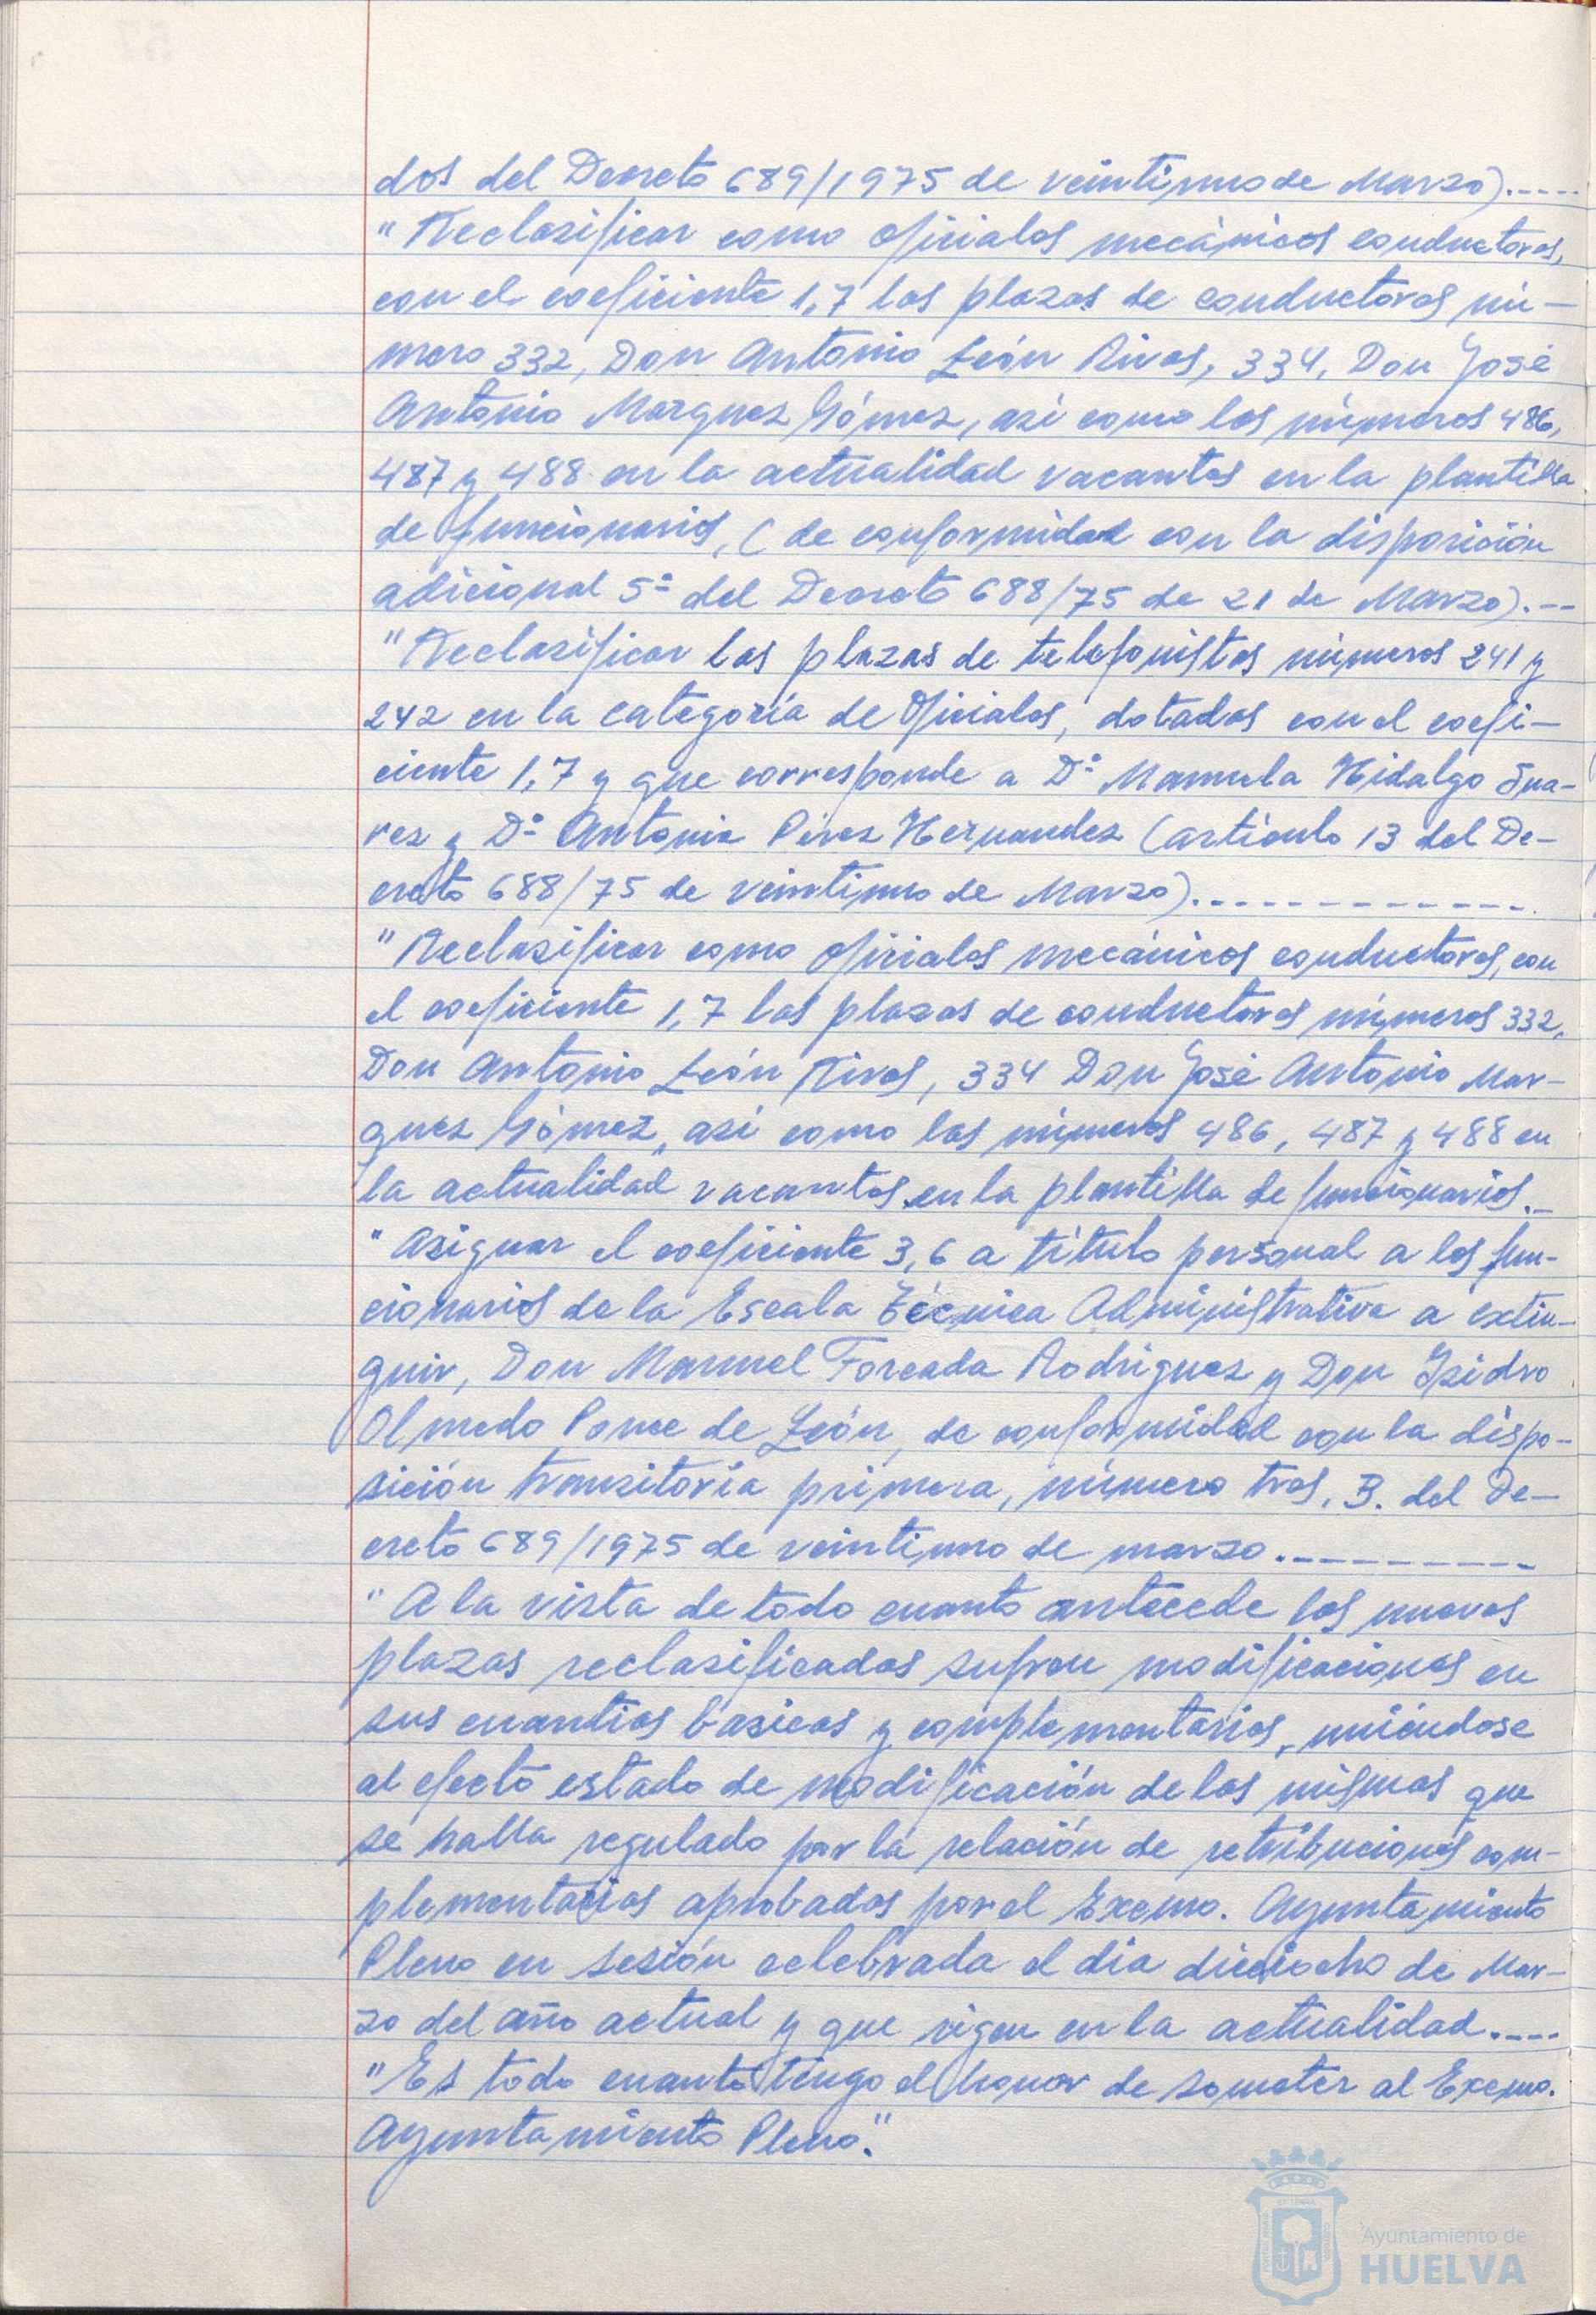 dos del Decreto 689/1975 de veintiuno de Marzo).----
"Reclasificar como oficiales mecánicos conductores,
con el coeficiente 1,7 las plazas de conductores nú-
mero 332, Don Antonio León Rivas, 334, Don José
Antonio Marquez Gómez, así como los números 486,
487 y 488 en la actualidad vacantes en la plantilla
de funcionarios, (de conformidad con la disposición
adicional 5ª del Decreto 688/75 de 21 de Marzo).--
"Reclasificar las plazas de telefonistas números 241 y
242 en la categoría de Oficiales, dotadas con el coefi-
ciente 1,7 y que corresponde a Dª Manuela Hidalgo Sua-
rez y Dª Antonia Pérez Hernandez (artículo 13 del De-
creto 688/75 de veintiuno de Marzo).-------------
"Reclasificar como oficiales mecánicos conductores, con
el coeficiente 1,7 las plazas de conductores números 332,
Don Antonio León Rivas, 334 Don José Antonio Mar-
quez Gómez, así como las números 486, 487 y 488 en
la actualidad vacantes en la plantilla de funcionarios.-
"Asignar el coeficiente 3,6 a título personal a los fun-
cionarios de la Escala Técnica Administrativa a extin-
guir, Don Manuel Forcada Rodriguez y Don Isidro
Olmedo Ponce de León, de conformidad con la dispo-
sición transitoria primera, número tres, B. del De-
creto 689/1975 de veintiuno de marzo.---------
"A la vista de todo cuanto antecede las nuevas
plazas reclasificadas sufren modificaciones en
sus cuantías básicas y complementarias, uniéndose
al efecto estado de modificación de las mismas que
se halla regulado por la relación de retribuciones com-
plementarias aprobadas por el Excmo. Ayuntamiento
Pleno en sesión celebrada el día dieciocho de Mar-
zo del año actual y que rigen en la actualidad.----
"Es todo cuanto tengo el honor de someter al Excmo.
Ayuntamiento Pleno."
Ayuntamiento de
HUELVA